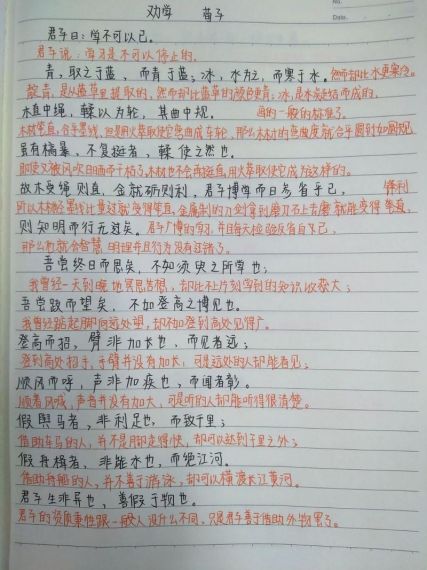 No.
Date.
劝学 荀子
君子曰:学不可以已。
君子说:学习是不可以停止的。
青,取之于蓝,而青于蓝;冰,水为之,而寒于水。然而却比水更寒冷。
靛青,是从蓝草里提取的,然而却比蓝草的颜色更青;冰,是水凝结而成的,
木直中绳,𫐓以为轮,其曲中规。 画的一般的标准了。
木材笔直,合乎墨线,但是用火萃取使它弯曲成车轮,那么木材的弯曲度就合乎圆到如圆规
虽有槁暴,不复挺者,𫐓使之然也。
即使又被风吹日晒而干枯了,木材也不会再挺直,用火萃取使它成为这样的。
故木受绳则直,金就砺则利,君子博学而日参省乎己, 锋利
所以木材经墨线比量过就变得笔直,金属制的刀剑拿到磨刀石上去磨就能变得笔直,
则知明而行无过矣。君子广博的学习,并且每天检验反省自己,
那么他就会智慧,明理并且行为没有过错了。
吾尝终日而思矣,不如须臾之所学也;
我曾经一天到晚地冥思苦想,却比不上片刻学到的知识收获大;
吾尝跂而望矣,不如登高之博见也。
我曾经踮起脚向远处望,却不如登到高处见得广。
登高而招,臂非加长也,而见者远;
登到高处招手,手臂并没有加长,可是远处的人却能看见;
顺风而呼,声非加疾也,而闻者彰。
顺着风喊,声音并没有加大,可是听的人却能听得很清楚。
假舆马者,非利足也,而致千里;
借助车马的人,并不是脚走得快,却可以达到千里之外;
假舟楫者,非能水也,而绝江河。
借助舟船的人,并不善于游泳,却可以横渡长江黄河。
君子生非异也,善假于物也。
君子的资质秉性跟一般人没什么不同,只是君子善于借助外物罢了。